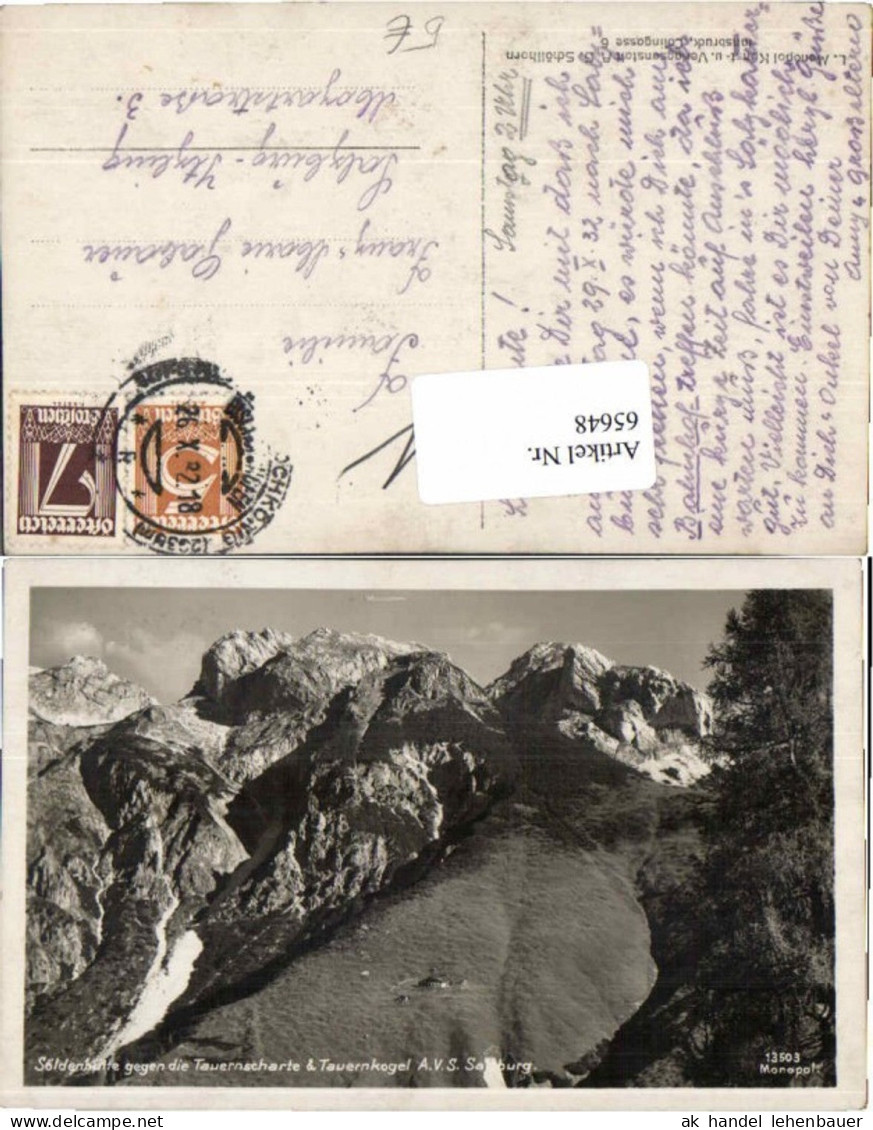 5€
L. Monopol Kunst- u. Verlagsanstalt R. D. Schöllhorn
Innsbruck, Colingasse 6
Samstag 3 Uhr
Dir mit daß ich
29. X. 32 nach Salz=
es würde mich
sehr freuen, wenn ich Dich am
Bahnhof treffen könnte, da ich
eine kurze Zeit auf Anschluß
warten muß, fahre in's Salzkammer=
gut. Vielleicht ist es Dir möglich
zu kommen. Einstweilen herzl. Grüße
an Dich & Onkel von Deiner
Anny & Großeltern
Familie
Franz & Marie
Salzburg-Itzling
Mozartstrasse 3.
Artikel Nr.
65648
Groschen
7
Österreich
Groschen
5
26. X. 32. 18
Söldenhütte gegen die Tauernscharte & Tauernkogel A.V.S. Salzburg.
13503
Monopol.
ak handel lehenbauer